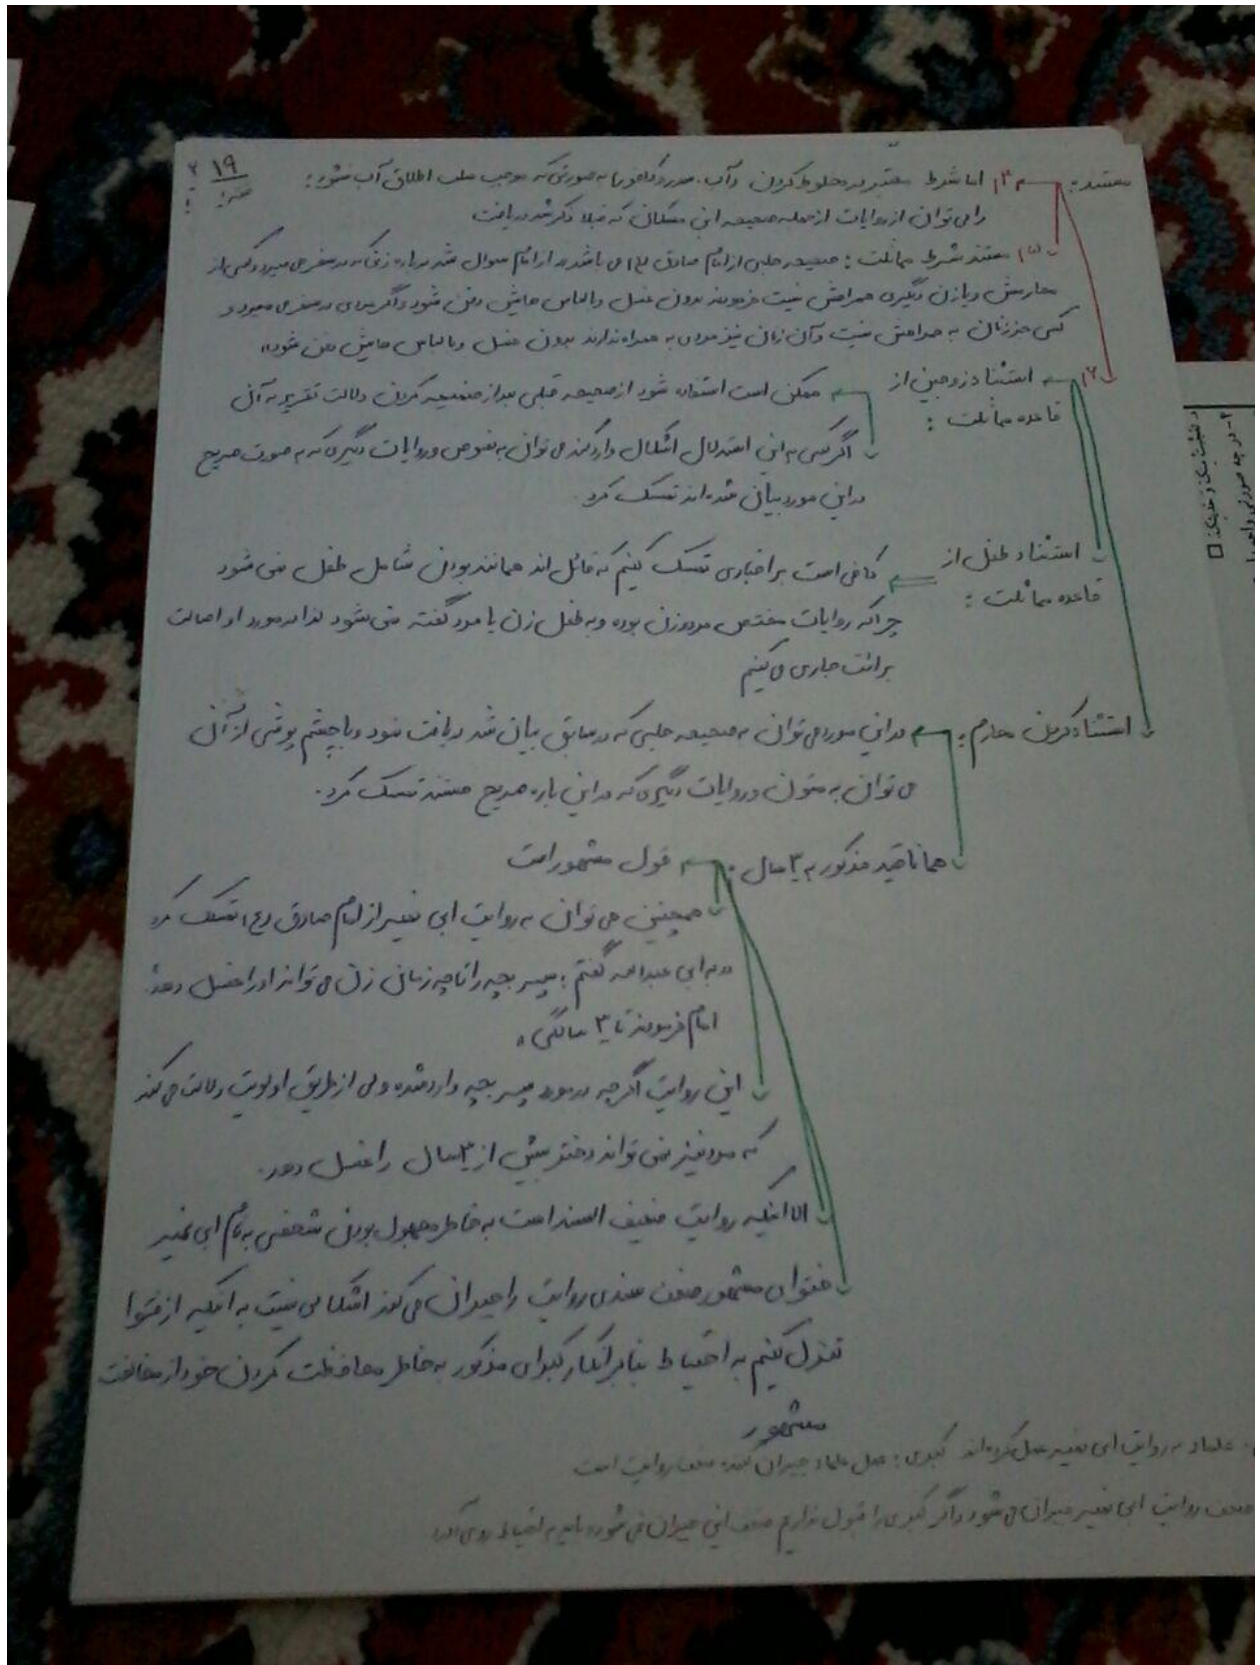 ۱۹
صفحه:
مستند: ۴) اما شرط معتبر در مخلوط کردن آب سدر و کافور به صورتی که موجب سلب اطلاق آب نشود:
را می توان از روایات از جمله صحیحه ابن مسکان که قبلا ذکر شد دریافت
۵) مستند شرط مماثلت: صحیحه حلبی از امام صادق (ع) می باشد که از امام سوال شد درباره زنی که در سفر می میرد و کسی از
محارمش و یا زن دیگری همراهش نیست فرمودند بدون غسل و با لباس هایش دفن شود و اگر مردی در سفری میمیرد و
کسی جز زنان به همراهش نیست و آن زنان نیز مردی به همراه ندارند بدون غسل و با لباس هایش دفن شود»
۶) استثناء زوجین از
قاعده مماثلت:
ممکن است استفاده شود از صحیحه قبلی بعد از ضمیمه کردن دلالت تقریر به آن
اگر کسی به این استدلال اشکال وارد کند می توان به نصوص و روایات دیگری که به صورت صریح
در این مورد بیان شده اند تمسک کرد.
استثناء طفل از
قاعده مماثلت:
کافی است بر اخباری تمسک کنیم که قائل اند همانند بودن شامل طفل نمی شود
چرا که روایات مختص مرد و زن بوده و به طفل زن یا مرد گفته نمی شود لذا در مورد او اصالت
برائت جاری می کنیم
استثناء کردن محارم: در این مورد می توان به صحیحه حلبی که در سابق بیان شد دریافت نمود و با چشم پوشی از آن
می توان به متون و روایات دیگری که در این باره صریح هستند تمسک کرد.
همانا قید مذکور به ۳ سال: قول مشهور است
همچنین می توان به روایت ابی نمیر از امام صادق (ع) تمسک کرد
«به ابی عبدالله گفتم: پسر بچه را تا چه زمانی زن می تواند او را غسل دهد.
امام فرمودند تا ۳ سالگی»
این روایت اگرچه در مورد پسر بچه وارد شده ولی از طریق اولویت دلالت می کند
که مرد نیز نمی تواند دختر بیش از ۳ سال را غسل دهد.
الا اینکه روایت ضعیف السند است به خاطر مجهول بودن شخصی به نام ابی نمیر
فتوای مشهور ضعف سندی روایت را جبران می کند اشکالی نیست به اینکه از فتوا
تنزل کنیم به احتیاط بنابر انکار کبرای مذکور به خاطر محافظت کردن خود از مخالفت
مشهور
علماء به روایت ابی نمیر عمل کرده اند کبری: عمل علماء جبران کننده ضعف روایت است
ضعف روایت ابی نمیر جبران می شود و اگر کبری را قبول نداریم ضعف این جبران نمی شود باید به احتیاط روی آورد